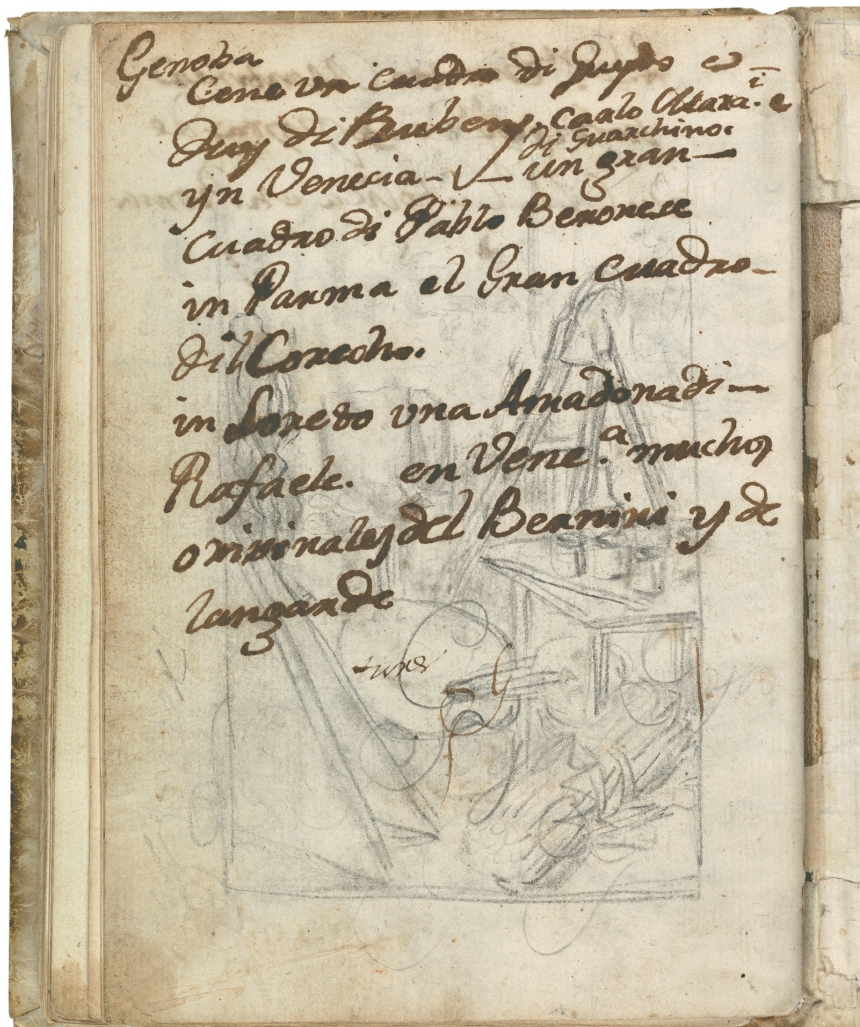 Genoba
Cene un cuadro di Guydo e
dus di Rubens. carlo Mara.i e
di Guarchino.
yn Venecia - un gran —
cuadro di Pablo Beronese
in Parma el Gran Cuadro -
dil Corecho.
in Loreto una Amadona di —
Rafaele. en Vene.a muchos
orininales del Bernini y de
langarde